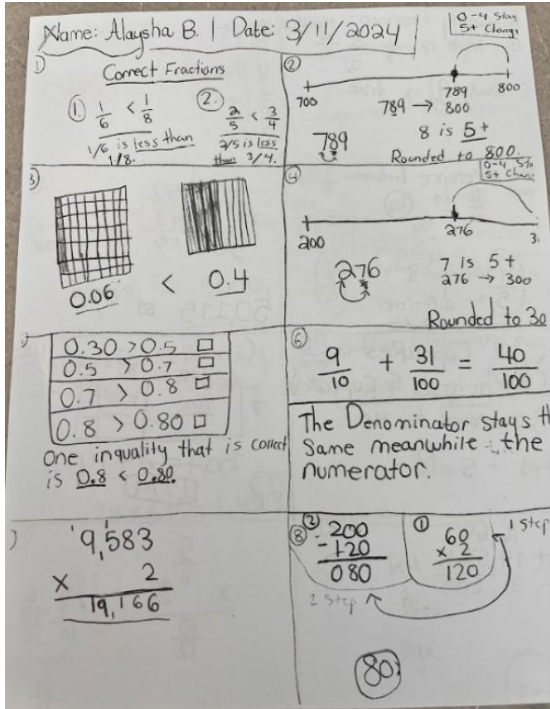 Name: Alaysha B. | Date: 3/11/2024
0-4 Stay
5+ Chang
①
Correct Fractions
①. 1/6 < 1/8
1/6 is less than
1/8.
②. 2/5 < 3/4
2/5 is less
than 3/4.
②
700 789 800
789 → 800
789
8 is 5+
Rounded to 800.
3)
0.06 < 0.4
④
0-4 Sta
5+ Chan
200 276 3
276
7 is 5+
276 → 300
Rounded to 30
0.30 > 0.5 □
0.5 > 0.7 □
0.7 > 0.8 □
0.8 > 0.80 □
One inquality that is correct
is 0.8 < 0.80.
⑥
9/10 + 31/100 = 40/100
The Denominator stays th
Same meanwhile the
numerator.
9,583
x 2
19,166
⑧
② 200
-120
080
2 step
① 60
x 2
120
1 step
80